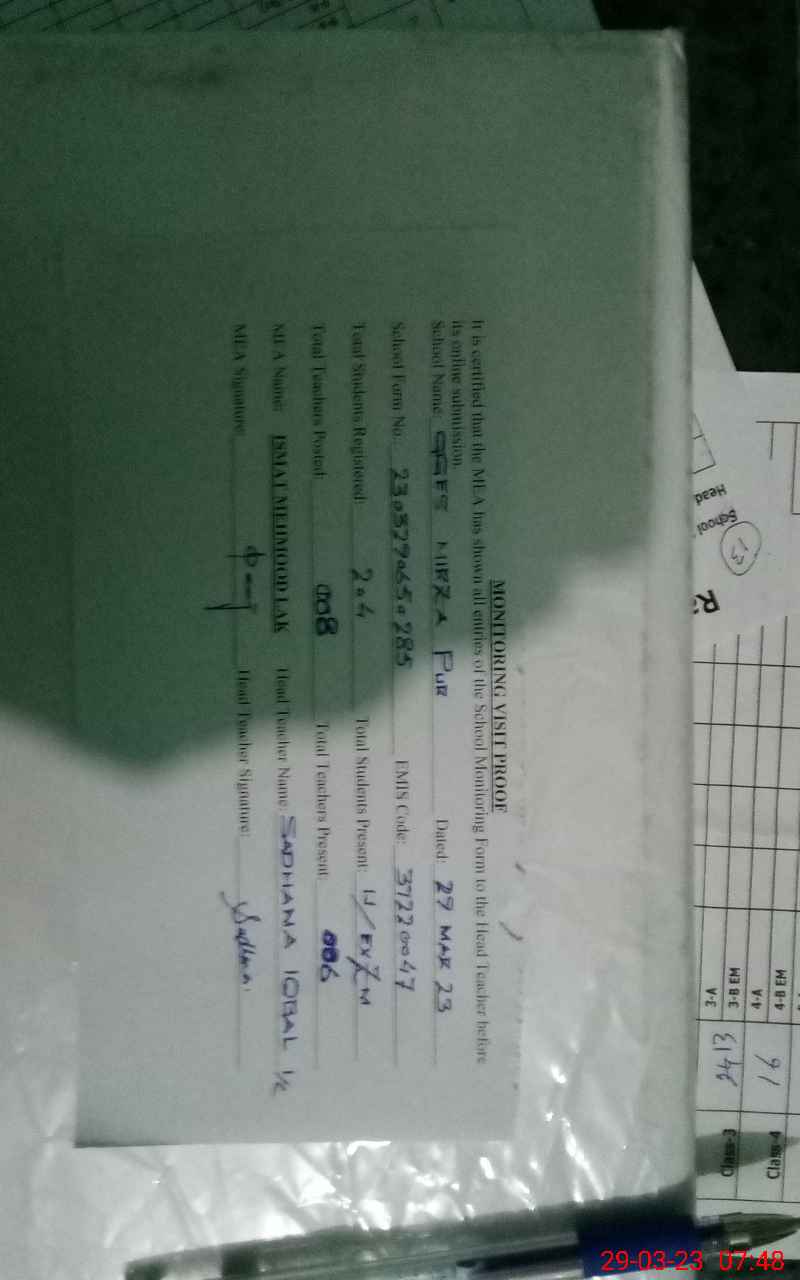 MONITORING VISIT PROOF
It is certified that the MEA has shown all entries of the School Monitoring Form to the Head Teacher before
its online submission.
School Name: GGES MIRZA PUR Dated: 29 MAR 23
School Form No.: 2303290650285 EMIS Code: 37220047
Total Students Registered: 204 Total Students Present: In/EXAM
Total Teachers Posted: 008 Total Teachers Present: 006
MEA Name: ISMAT MEHMOOD LAK Head Teacher Name: SADHANA IQBAL I/C
MEA Signature: Head Teacher Signature: Sadhana
School
Head
13
3-A
3-B EM
4-A
4-B EM
Class-3
Class-4
16
29-03-23 07:48